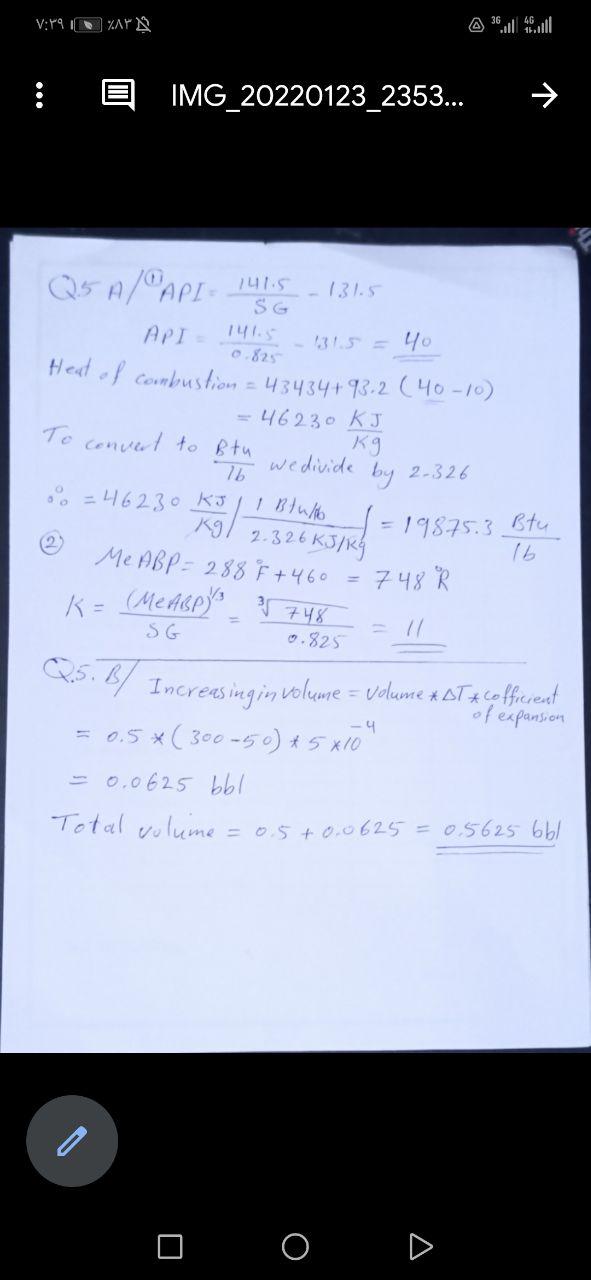 ٧:٣٩ ٪٨٣ 3G 4G
IMG_20220123_2353...
Q5 A/ ① API = 141.5 / SG - 131.5
API = 141.5 / 0.825 - 131.5 = 40
Heat of combustion = 43434 + 93.2 (40 - 10)
= 46230 KJ / Kg
To convert to Btu / lb we divide by 2.326
∴ = 46230 KJ / Kg / 1 Btu/lb / 2.326 KJ/Kg = 19875.3 Btu / lb
② MeABP = 288 °F + 460 = 748 °R
K = (MeABP)^1/3 / SG = ³√748 / 0.825 = 11
Q5. B/ Increasing in volume = Volume * ΔT * cofficient
of expansion
= 0.5 * (300 - 50) * 5 * 10^-4
= 0.0625 bbl
Total volume = 0.5 + 0.0625 = 0.5625 bbl